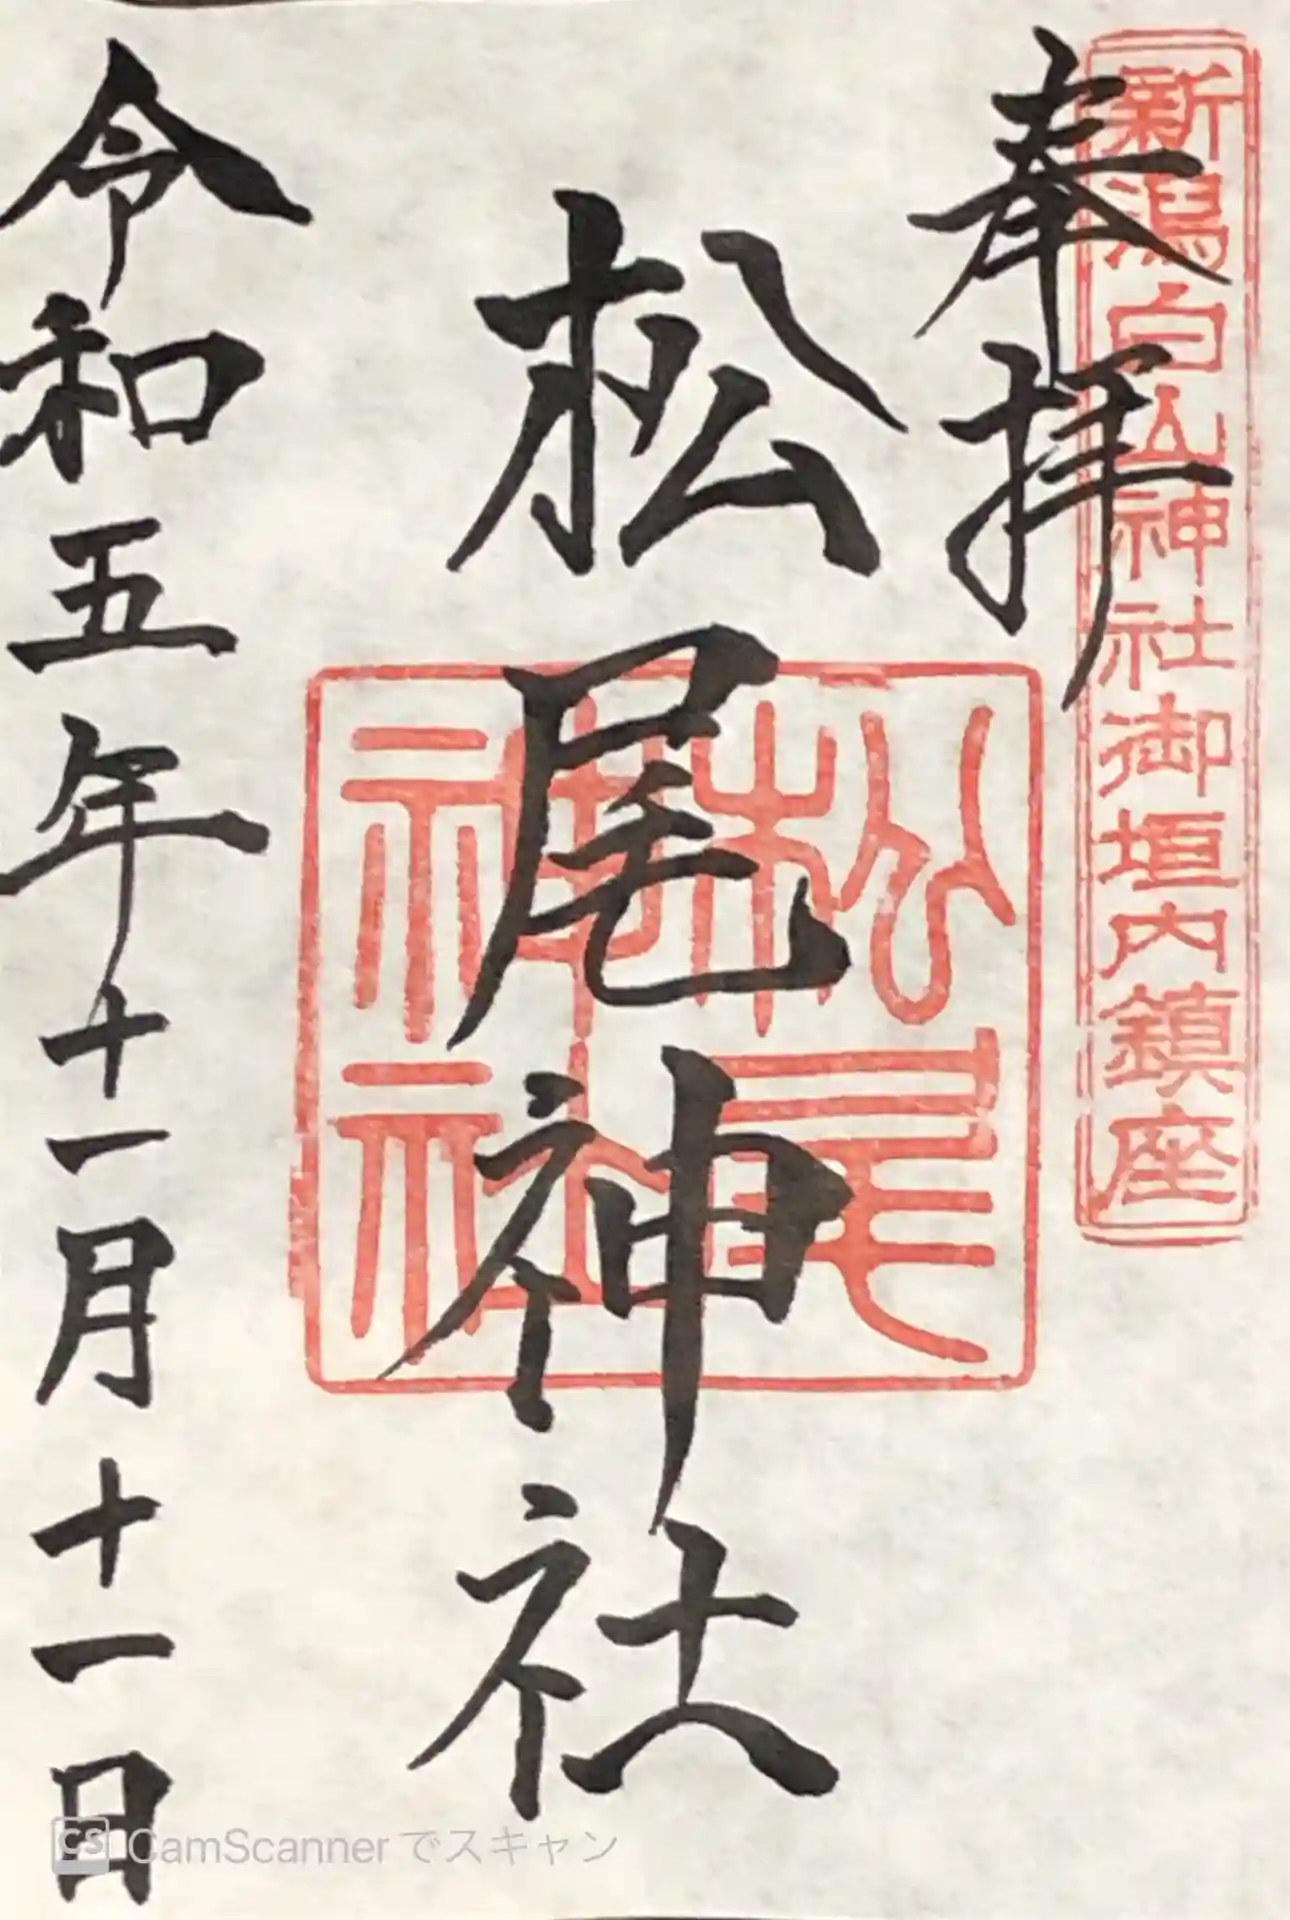 奉拝
新潟白山神社御垣内鎮座
松尾神社
松尾
神社
令和五年十一月十一日
CS CamScanner でスキャン